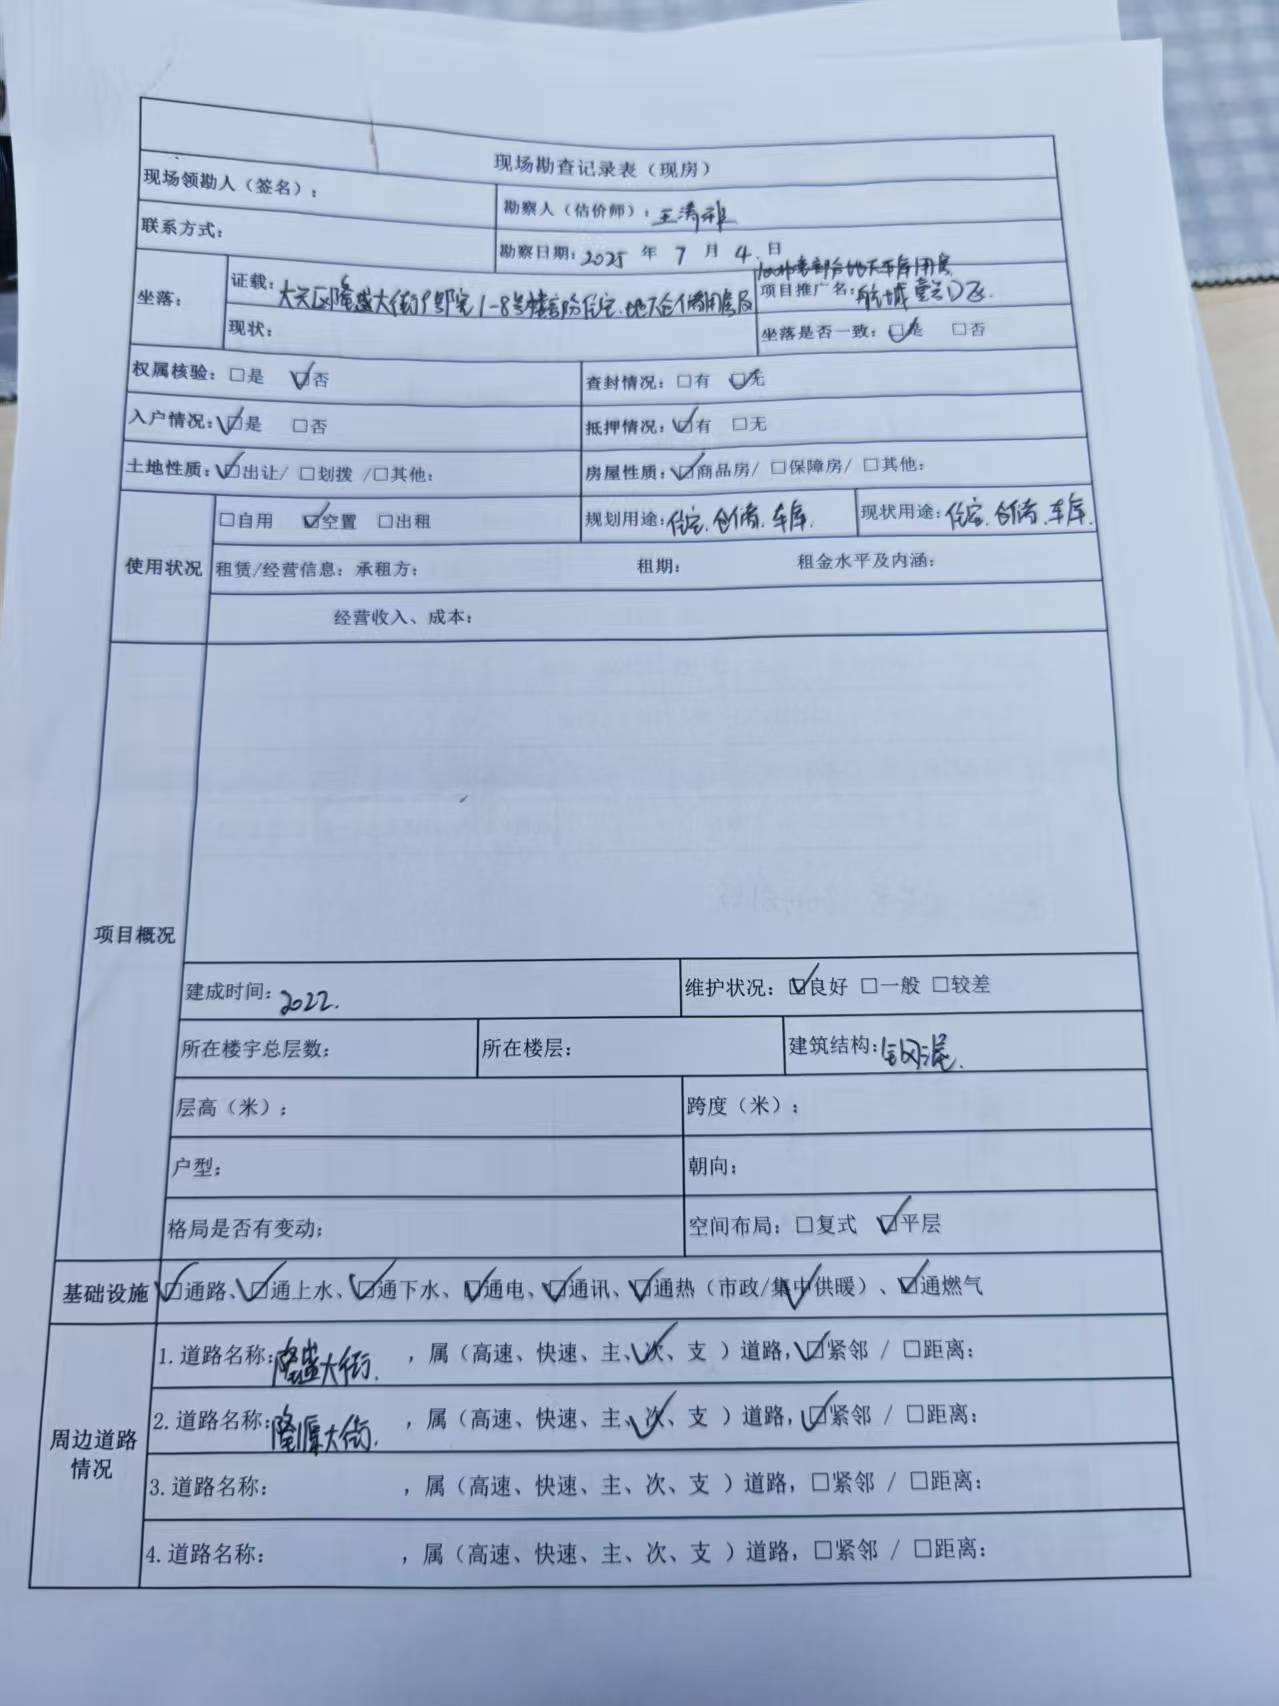 现场勘查记录表（现房）
现场领勘人（签名）：
勘察人（估价师）：王清雅
联系方式：
勘察日期：2025 年 7 月 4 日
坐落：
证载：大兴区隆盛大街 院1-8号楼部分住宅、地下仓储用房及
部分地下车库用房
项目推广名：
现状：
坐落是否一致：☑是 □否
权属核验：□是 ☑否
查封情况：□有 ☑无
入户情况：☑是 □否
抵押情况：☑有 □无
土地性质：☑出让/ □划拨 /□其他：
房屋性质：☑商品房/ □保障房/ □其他：
使用状况
□自用 ☑空置 □出租
规划用途：住宅、仓储、车库.
现状用途：住宅、仓储、车库.
租赁/经营信息：承租方： 租期： 租金水平及内涵：
经营收入、成本：
项目概况
建成时间：2022.
维护状况：☑良好 □一般 □较差
所在楼宇总层数：
所在楼层：
建筑结构：钢混.
层高（米）：
跨度（米）：
户型：
朝向：
格局是否有变动：
空间布局：□复式 ☑平层
基础设施
☑通路、☑通上水、☑通下水、☑通电、☑通讯、☑通热（市政/集中供暖）、☑通燃气
周边道路情况
1.道路名称：隆盛大街. ，属（高速、快速、主、次、支 ）道路，☑紧邻 / □距离：
2.道路名称：隆源大街. ，属（高速、快速、主、次、支 ）道路，☑紧邻 / □距离：
3.道路名称： ，属（高速、快速、主、次、支 ）道路，□紧邻 / □距离：
4.道路名称： ，属（高速、快速、主、次、支 ）道路，□紧邻 / □距离：